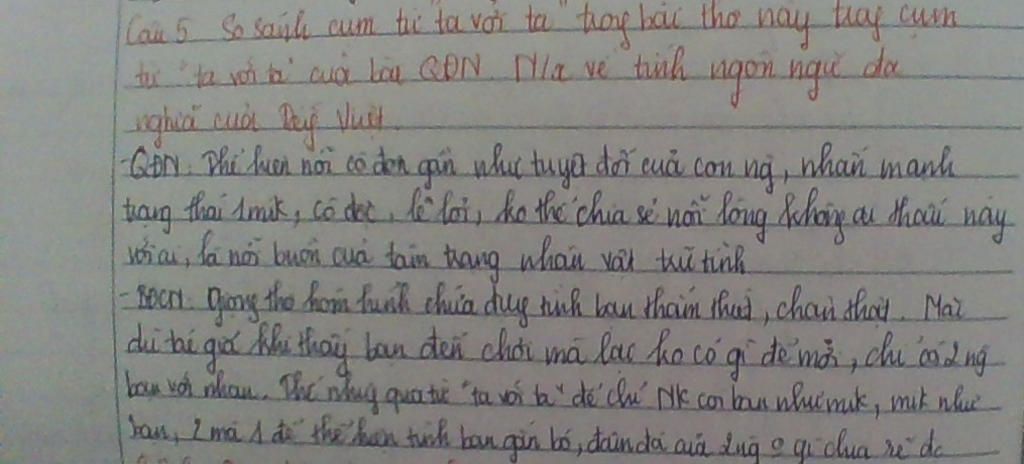 Câu 5 So sánh cụm từ "ta với ta" trong bài thơ này với cụm
từ "ta với ta" của bài QĐN. N/x về tính ngôn ngữ đa
nghĩa của Tiếng Việt.
-QĐN: Thể hiện nỗi cô đơn gần như tuyệt đối của con ng, nhấn mạnh
trạng thái 1 mik, cô độc, lẻ loi, ko thể chia sẻ nỗi lòng không ai thấu này
với ai, là nỗi buồn của tâm trạng nhân vật trữ tình
-BĐCN: Giọng thơ hóm hỉnh chứa đựng tình bạn thắm thiết, chân thật. Mặc
dù tác giả khi thấy bạn đến chơi mà lại ko có gì để mời, chỉ có 2 ng
bạn với nhau. Thế nhưng qua từ "ta với ta" để chỉ NK coi bạn như mik, mik như
bạn, 2 mà 1 để thể hiện tình bạn gắn bó, đậm đà của 2 ng gì chia rẽ đc